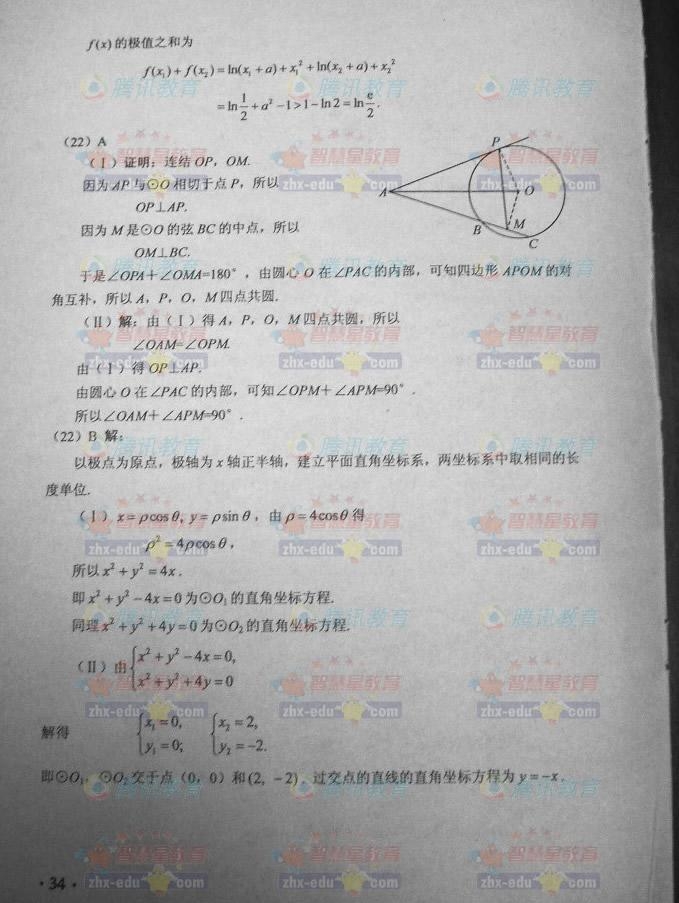 f(x)的极值之和为
f(x₁)+f(x₂)=ln(x₁+a)+x₁²+ln(x₂+a)+x₂²
=ln 1/2 +a²-1>1-ln2=ln e/2.
(22) A
(Ⅰ)证明：连结OP, OM.
因为AP与⊙O相切于点P，所以
OP⊥AP.
因为M是⊙O的弦BC的中点，所以
OM⊥BC.
P
A
O
B
M
C
于是∠OPA+∠OMA=180°，由圆心O在∠PAC的内部，可知四边形APOM的对
角互补，所以A，P，O，M四点共圆.
(Ⅱ)解：由(Ⅰ)得A，P，O，M四点共圆，所以
∠OAM=∠OPM.
由(Ⅰ)得OP⊥AP.
由圆心O在∠PAC的内部，可知∠OPM+∠APM=90°.
所以∠OAM+∠APM=90°.
(22) B 解：
以极点为原点，极轴为x轴正半轴，建立平面直角坐标系，两坐标系中取相同的长
度单位.
(Ⅰ) x=ρcosθ, y=ρsinθ，由ρ=4cosθ得
ρ²=4ρcosθ，
所以x²+y²=4x.
即x²+y²-4x=0为⊙O₁的直角坐标方程.
同理x²+y²+4y=0为⊙O₂的直角坐标方程.
(Ⅱ)由{x²+y²-4x=0,
x²+y²+4y=0
解得 {x₁=0, {x₂=2,
y₁=0; y₂=-2.
即⊙O₁，⊙O₂交于点(0, 0)和(2, -2). 过交点的直线的直角坐标方程为y=-x.
·34·
腾讯教育
智慧星教育
zhx-edu com